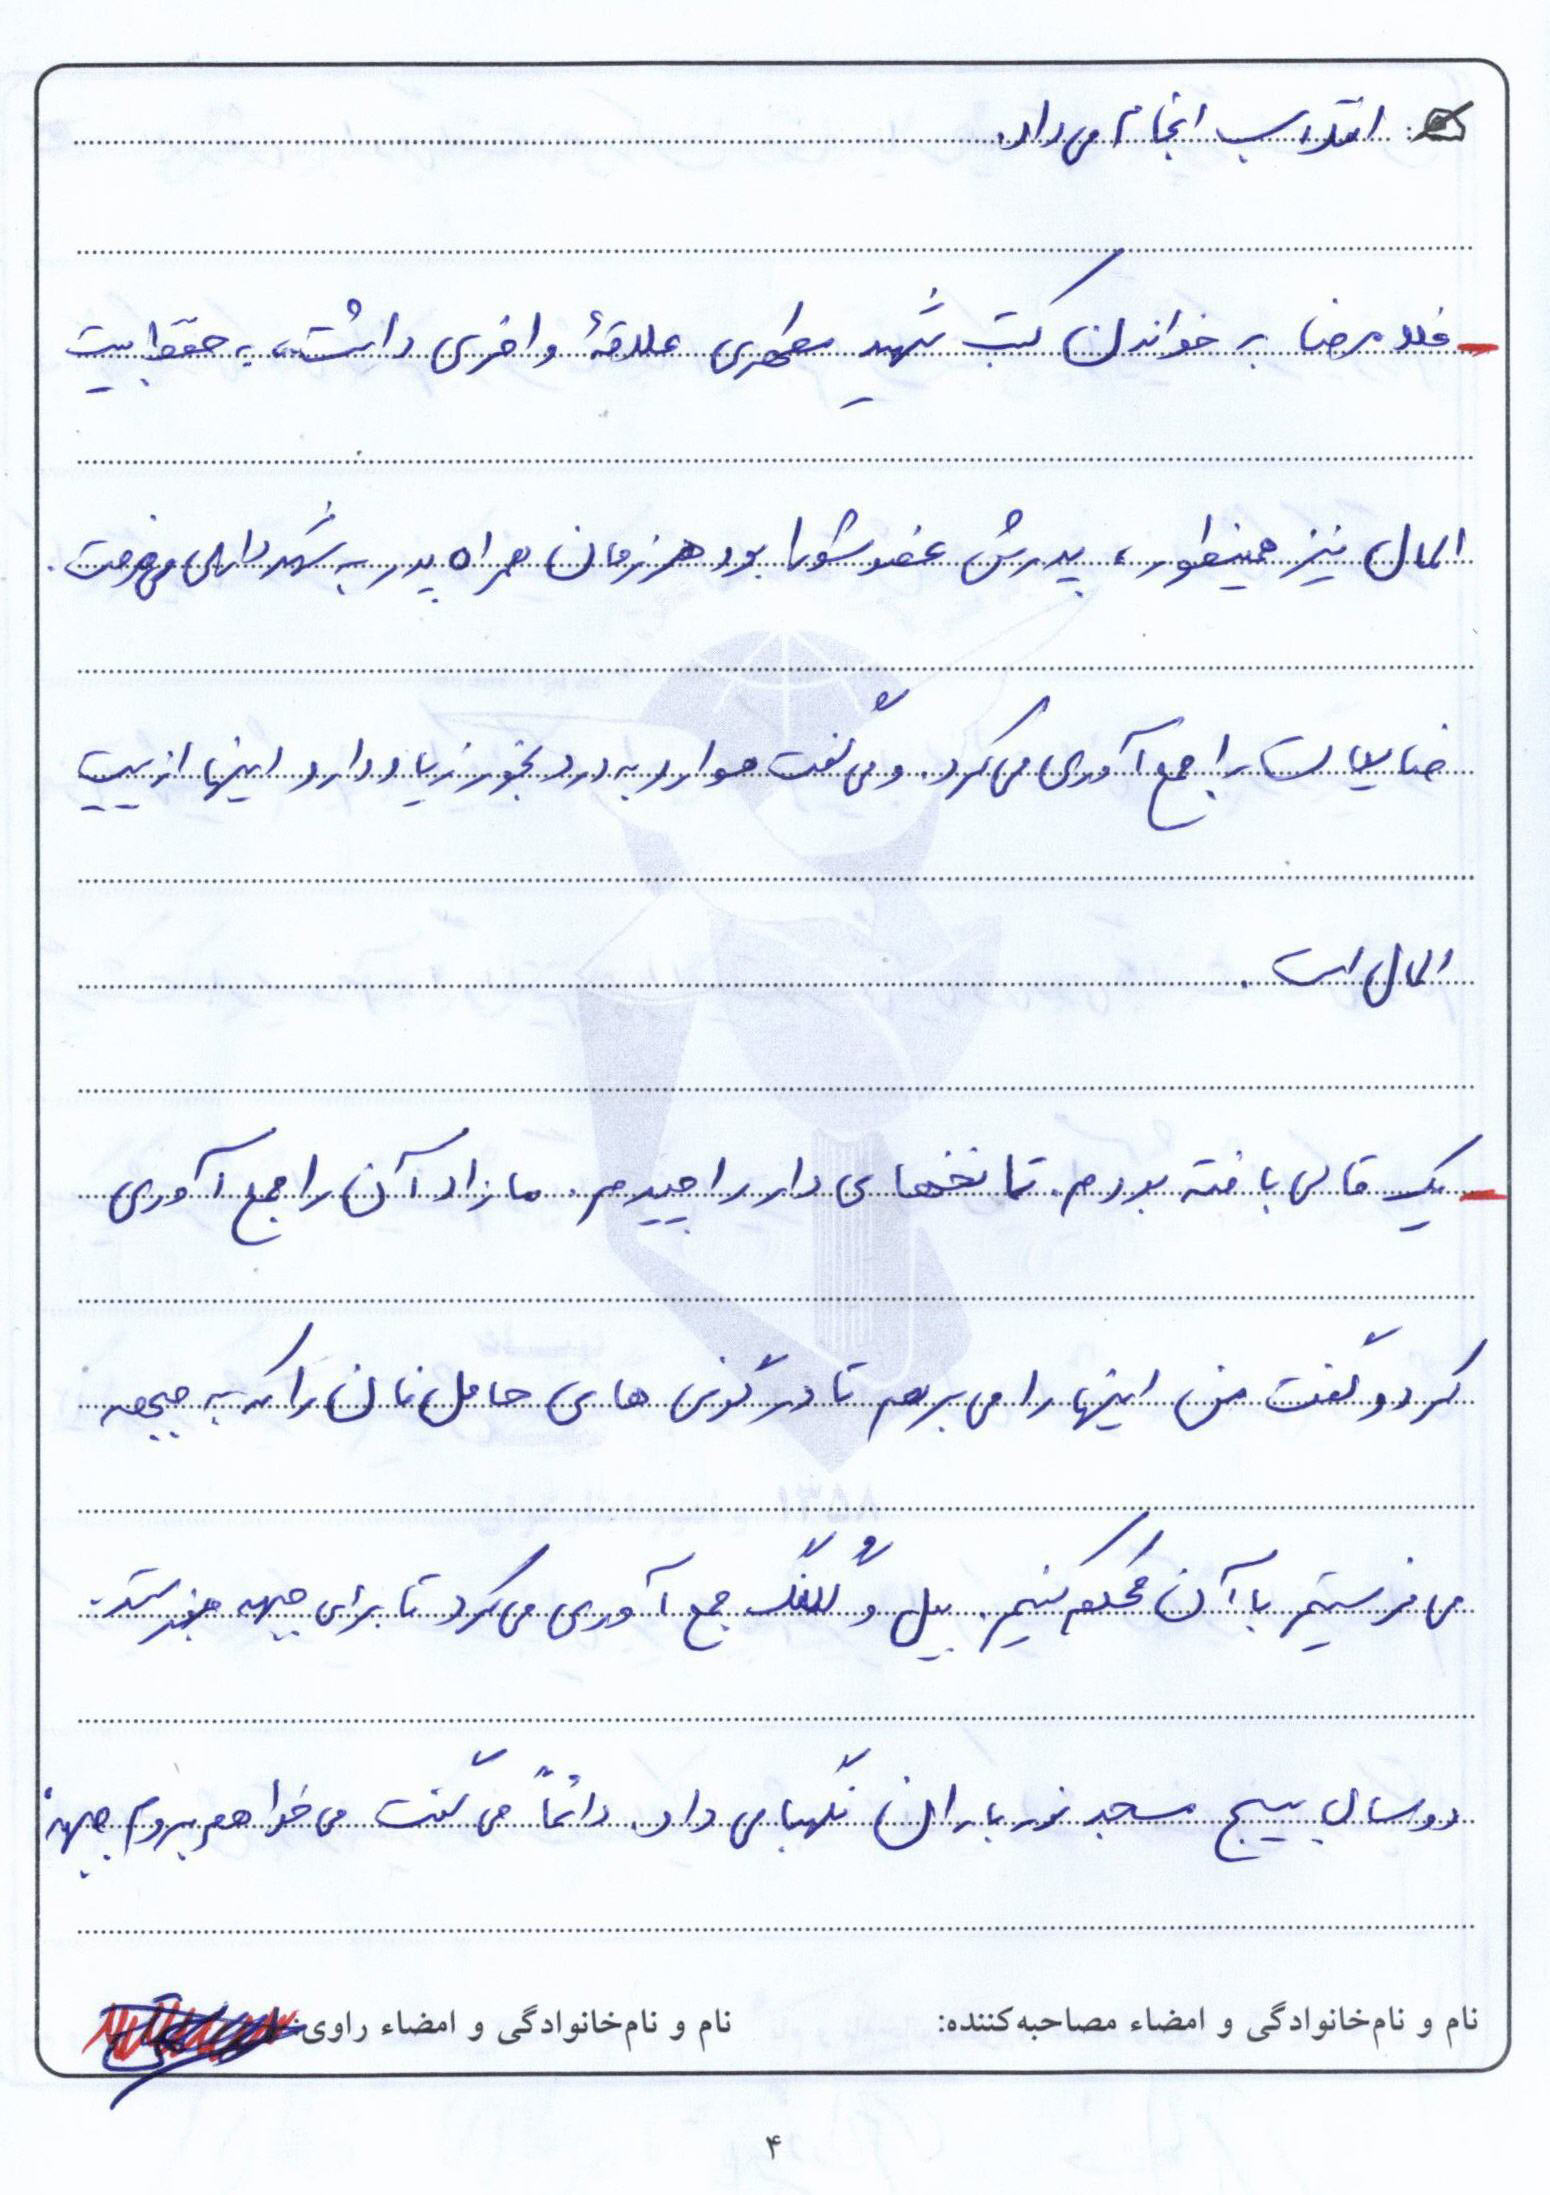 انقلاب انجام می‌داد.
- غلامرضا به خواندن کتب شهید مطهری علاقهٔ وافری داشت، به حفظ بیت
المال نیز همینطور، پدرش عضو شورا بود هر زمان همراه پدر به شهرداری می‌رفت.
ضایعات را جمع آوری می‌کرد. و می‌گفت موارد به درد بخور زیاد دارد اینها از بیت
المال است.
- یک قالی بافته بودم. تا نخهای دار را چیدم. مازاد آن را جمع آوری
کرد و گفت من اینها را می برم تا در گونی های حامل نان را که به جبهه
می فرستیم با آن محکم کنیم. بیل و کلنگ جمع آوری می‌کرد تا برای جبهه بفرستد.
دو سال بسیج مسجد نور باران نگهبانی داد. دائماً می گفت می خواهم بروم جبهه.
نام و نام‌خانوادگی و امضاء مصاحبه‌کننده: نام و نام‌خانوادگی و امضاء راوی:
۴